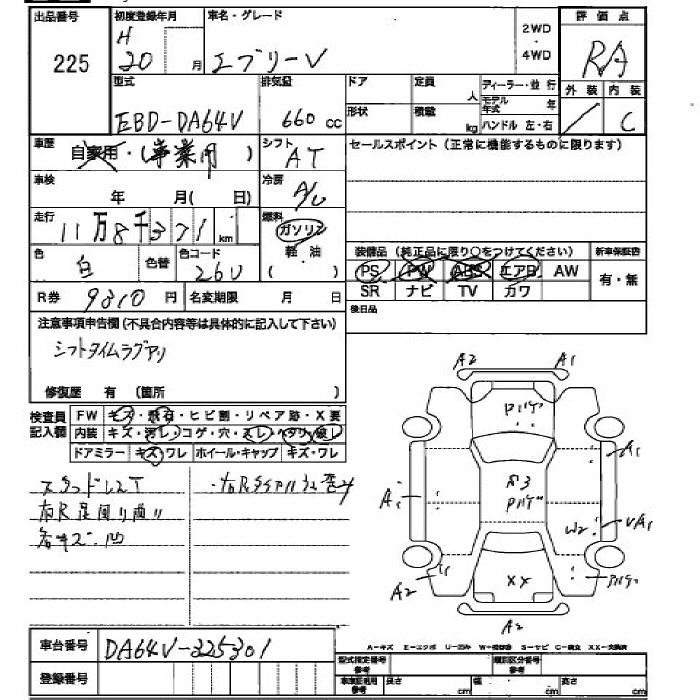 出品番号 初度登録年月 車名・グレード 評価点
225 H 20 月 エブリーV 2WD ・ 4WD RA
外装 内装
C
型式 排気量 ドア 定員 人 ディーラー・並行
EBD-DA64V 660 cc 形状 積載 kg モデル年式 年
ハンドル 左・右
車歴 自家用・(事業用) シフト AT セールスポイント(正常に機能するものに限ります)
車検 年 月(日) 冷房 A/C
走行 11万8千371 km 燃料 ガソリン 軽・油 ( )
色 白 色替 色コード 26U
装備品(純正品に限り○をつけてください) 新車保証書
PS PW ABS エアB AW 有・無
SR ナビ TV カワ
R券 9310 円 名変期限 月 日 後日品
注意事項申告欄(不具合内容等は具体的に記入して下さい)
シフトタイムラグアリ
修復歴 有 (箇所 )
検査員記入欄 FW キズ・飛石・ヒビ割・リペア跡・X要
内装 キズ・汚レ・コゲ・穴・スレ・ヘタリ・破レ
ドアミラー キズ・ワレ ホイール・キャップ キズ・ワレ
スタッドレスT
各キズ・凹
A2 A1
A1
W2
A2
XX
A2
車台番号 DA64V-325301
登録番号
A-キズ E-エクボ U-凹み S-サビ C-腐食 XX-交換済
型式指定番号 参考 類別区分番号 参考
車庫証明用 参考 長さ cm 幅 cm 高さ cm